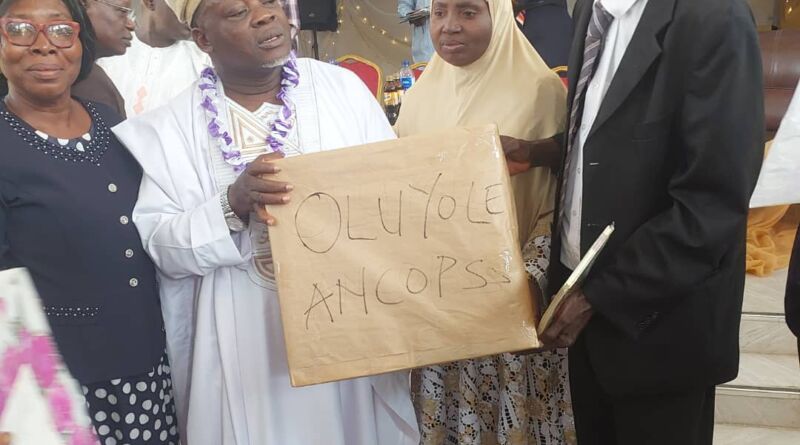 OLUYOLE
ANCOPSS